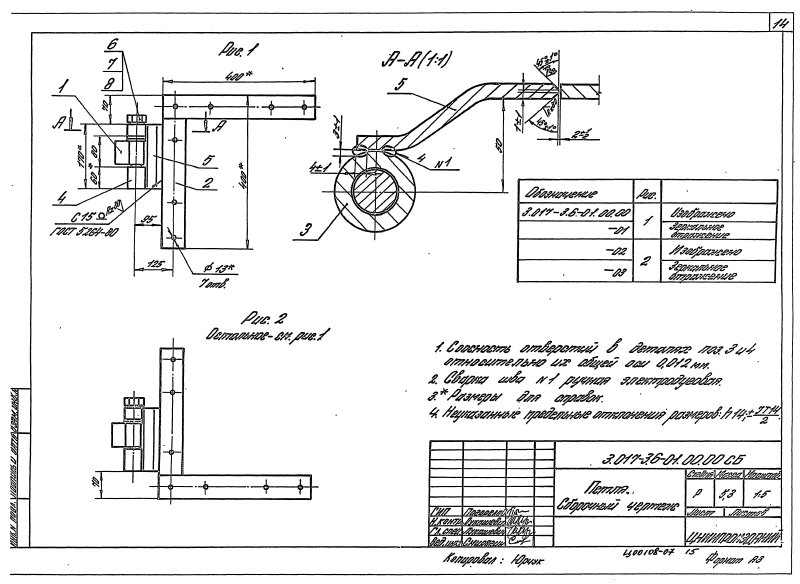 14
Рис. 1
А-А (1:1)
6
7
8
1
400*
70
А
А
5
3±1
45°±1°
45°±1°
1±1
2
50
170*
80
60*
5
2
4
400*
4±1
4
№1
3
С15
ГОСТ 5264-80
95
125
φ 13*
7 отв.
Обозначение
Рис.
3.017-3.6-01.00.00
1
Изображено
-01
Зеркальное отражение
-02
2
Изображено
-03
Зеркальное отражение
Рис. 2
Остальное-см. рис. 1
70
1. Соосность отверстий в деталях поз. 3 и 4
относительно их общей оси 0,012 мм.
2. Сварка шва №1 ручная электродуговая.
3.* Размеры для справок.
4. Неуказанные предельные отклонения размеров: h14; ± IT14/2
3.017-3.6-01.00.00 СБ
Петля.
Сборочный чертеж
Стадия Масса Масштаб
Р 5,3 1:5
Лист Листов
ГИП
Н. контр.
Копировал: Юрик
Ц00108-07 15
Формат А3